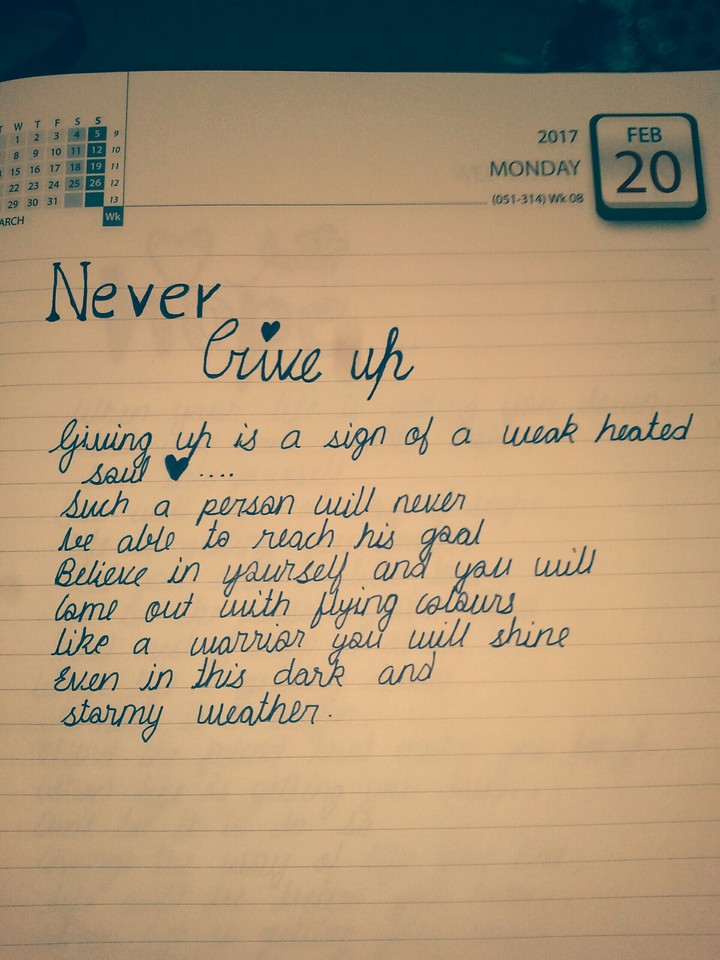 T W T F S S
1 2 3 4 5 9
8 9 10 11 12 10
15 16 17 18 19 11
22 23 24 25 26 12
29 30 31 13
ARCH Wk
2017
MONDAY
(051-314) Wk 08
FEB
20
Never
Give up
Giving up is a sign of a weak heated
soul ♥....
Such a person will never
be able to reach his goal
Believe in yourself and you will
Come out with flying colours
like a warrior you will shine
Even in this dark and
stormy weather.